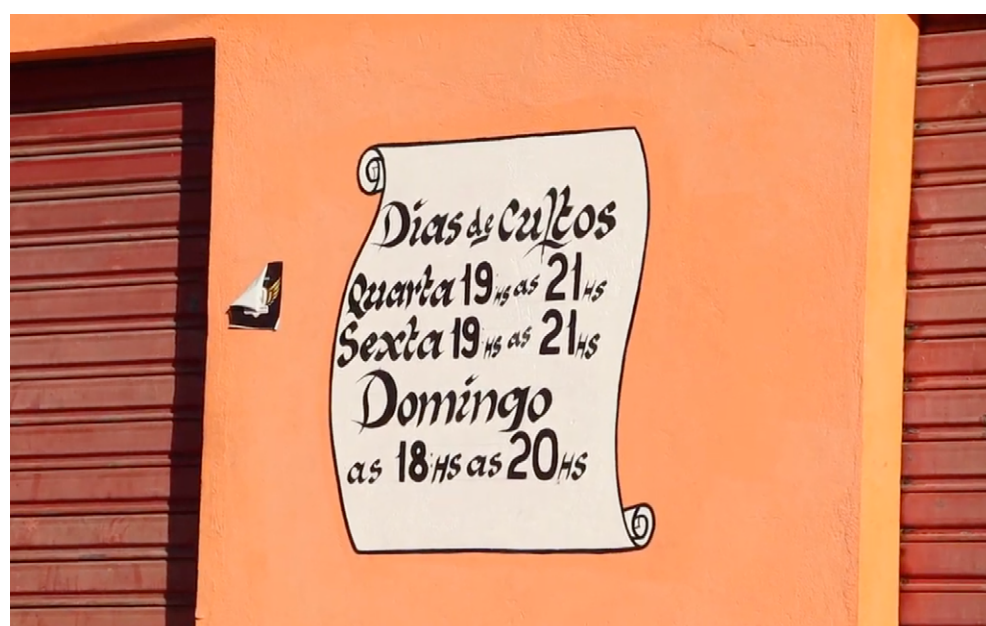 Dias de Cultos
Quarta 19HS as 21HS
Sexta 19HS as 21HS
Domingo
as 18HS as 20HS